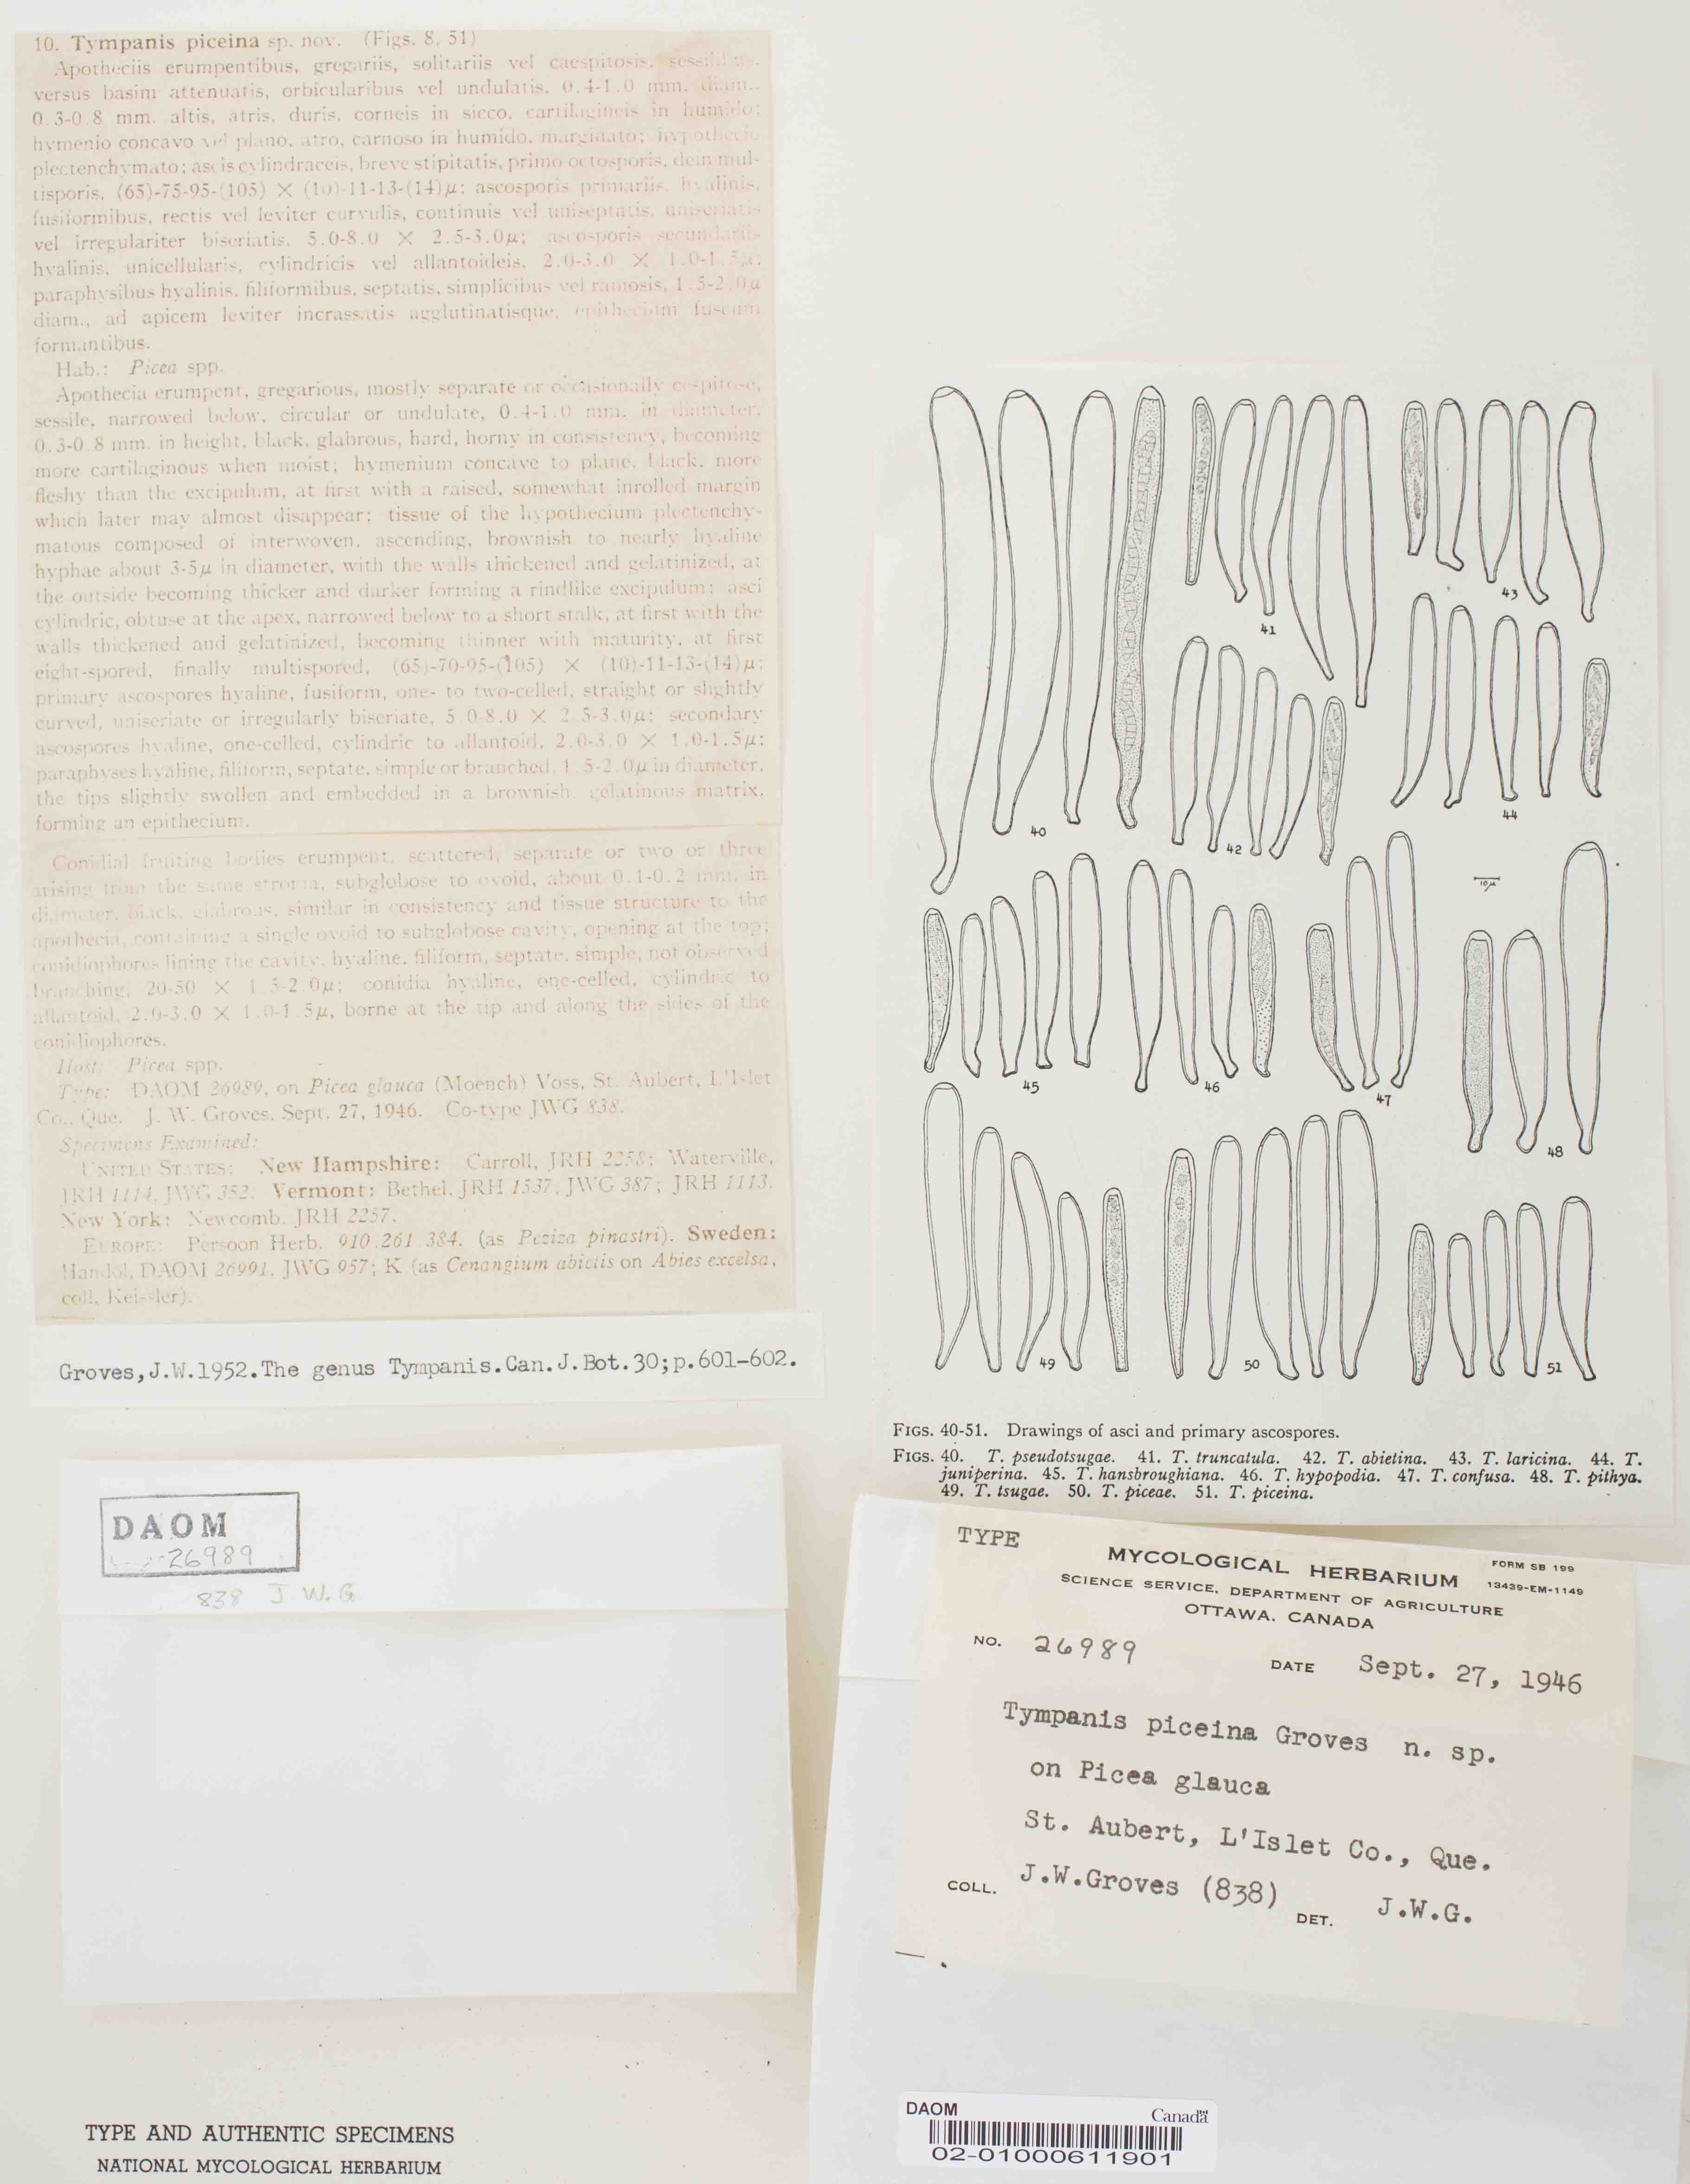 10. Tympanis piceina sp. nov. (Figs. 8, 51)
Apotheciis erumpentibus, gregariis, solitariis vel caespitosis, sessilibus,
versus basim attenuatis, orbicularibus vel undulatis, 0.4-1.0 mm. diam.,
0.3-0.8 mm. altis, atris, duris, corneis in sicco, cartilagineis in humido;
hymenio concavo vel plano, atro, carnoso in humido, marginato; hypothecio
plectenchymato; ascis cylindraceis, breve stipitatis, primo octosporis, dein mul-
tisporis, (65)-75-95-(105) × (10)-11-13-(14)μ; ascosporis primariis, hyalinis,
fusiformibus, rectis vel leviter curvulis, continuis vel uniseptatis, uniseriatis
vel irregulariter biseriatis, 5.0-8.0 × 2.5-3.0μ; ascosporis secundariis
hyalinis, unicellularis, cylindricis vel allantoideis, 2.0-3.0 × 1.0-1.5μ;
paraphysibus hyalinis, filiformibus, septatis, simplicibus vel ramosis, 1.5-2.0μ
diam., ad apicem leviter incrassatis agglutinatisque, epithecium fuscum
formantibus.
Hab.: Picea spp.
Apothecia erumpent, gregarious, mostly separate or occasionally cespitose,
sessile, narrowed below, circular or undulate, 0.4-1.0 mm. in diameter,
0.3-0.8 mm. in height, black, glabrous, hard, horny in consistency, becoming
more cartilaginous when moist; hymenium concave to plane, black, more
fleshy than the excipulum, at first with a raised, somewhat inrolled margin
which later may almost disappear; tissue of the hypothecium plectenchy-
matous composed of interwoven, ascending, brownish to nearly hyaline
hyphae about 3-5μ in diameter, with the walls thickened and gelatinized, at
the outside becoming thicker and darker forming a rindlike excipulum; asci
cylindric, obtuse at the apex, narrowed below to a short stalk, at first with the
walls thickened and gelatinized, becoming thinner with maturity, at first
eight-spored, finally multispored, (65)-70-95-(105) × (10)-11-13-(14)μ;
primary ascospores hyaline, fusiform, one- to two-celled, straight or slightly
curved, uniseriate or irregularly biseriate, 5.0-8.0 × 2.5-3.0μ; secondary
ascospores hyaline, one-celled, cylindric to allantoid, 2.0-3.0 × 1.0-1.5μ;
paraphyses hyaline, filiform, septate, simple or branched, 1.5-2.0μ in diameter,
the tips slightly swollen and embedded in a brownish, gelatinous matrix,
forming an epithecium.
Conidial fruiting bodies erumpent, scattered, separate or two or three
arising from the same stroma, subglobose to ovoid, about 0.1-0.2 mm. in
diameter, black, glabrous, similar in consistency and tissue structure to the
apothecia, containing a single ovoid to subglobose cavity, opening at the top;
conidiophores lining the cavity, hyaline, filiform, septate, simple, not observed
branching, 20-50 × 1.5-2.0μ; conidia hyaline, one-celled, cylindric to
allantoid, 2.0-3.0 × 1.0-1.5μ, borne at the tip and along the sides of the
conidiophores.
Host: Picea spp.
Type: DAOM 26989, on Picea glauca (Moench) Voss, St. Aubert, L'Islet
Co., Que. J. W. Groves, Sept. 27, 1946. Co-type JWG 838.
Specimens Examined:
UNITED STATES: New Hampshire: Carroll, JRH 2258; Waterville,
JRH 1114, JWG 352. Vermont: Bethel, JRH 1537, JWG 387; JRH 1113.
New York: Newcomb, JRH 2257.
EUROPE: Persoon Herb. 910.261 384. (as Peziza pinastri). Sweden:
Handöl, DAOM 26991, JWG 957; K (as Cenangium abietis on Abies excelsa,
coll, Keissler).
Groves,J.W.1952.The genus Tympanis.Can.J.Bot.30;p.601-602.
DAOM
26989
838 J.W.G
TYPE AND AUTHENTIC SPECIMENS
NATIONAL MYCOLOGICAL HERBARIUM
40
41
42
43
44
10μ
45
46
47
48
49
50
51
FIGS. 40-51. Drawings of asci and primary ascospores.
FIGS. 40. T. pseudotsugae. 41. T. truncatula. 42. T. abietina. 43. T. laricina. 44. T.
juniperina. 45. T. hansbroughiana. 46. T. hypopodia. 47. T. confusa. 48. T. pithya.
49. T. tsugae. 50. T. piceae. 51. T. piceina.
TYPE
MYCOLOGICAL HERBARIUM
FORM SB 199
13439-EM-1149
SCIENCE SERVICE, DEPARTMENT OF AGRICULTURE
OTTAWA, CANADA
NO. 26989
DATE Sept. 27, 1946
Tympanis piceina Groves n. sp.
on Picea glauca
St. Aubert, L'Islet Co., Que.
COLL. J.W.Groves (838)
DET. J.W.G.
DAOM
Canada
02-01000611901